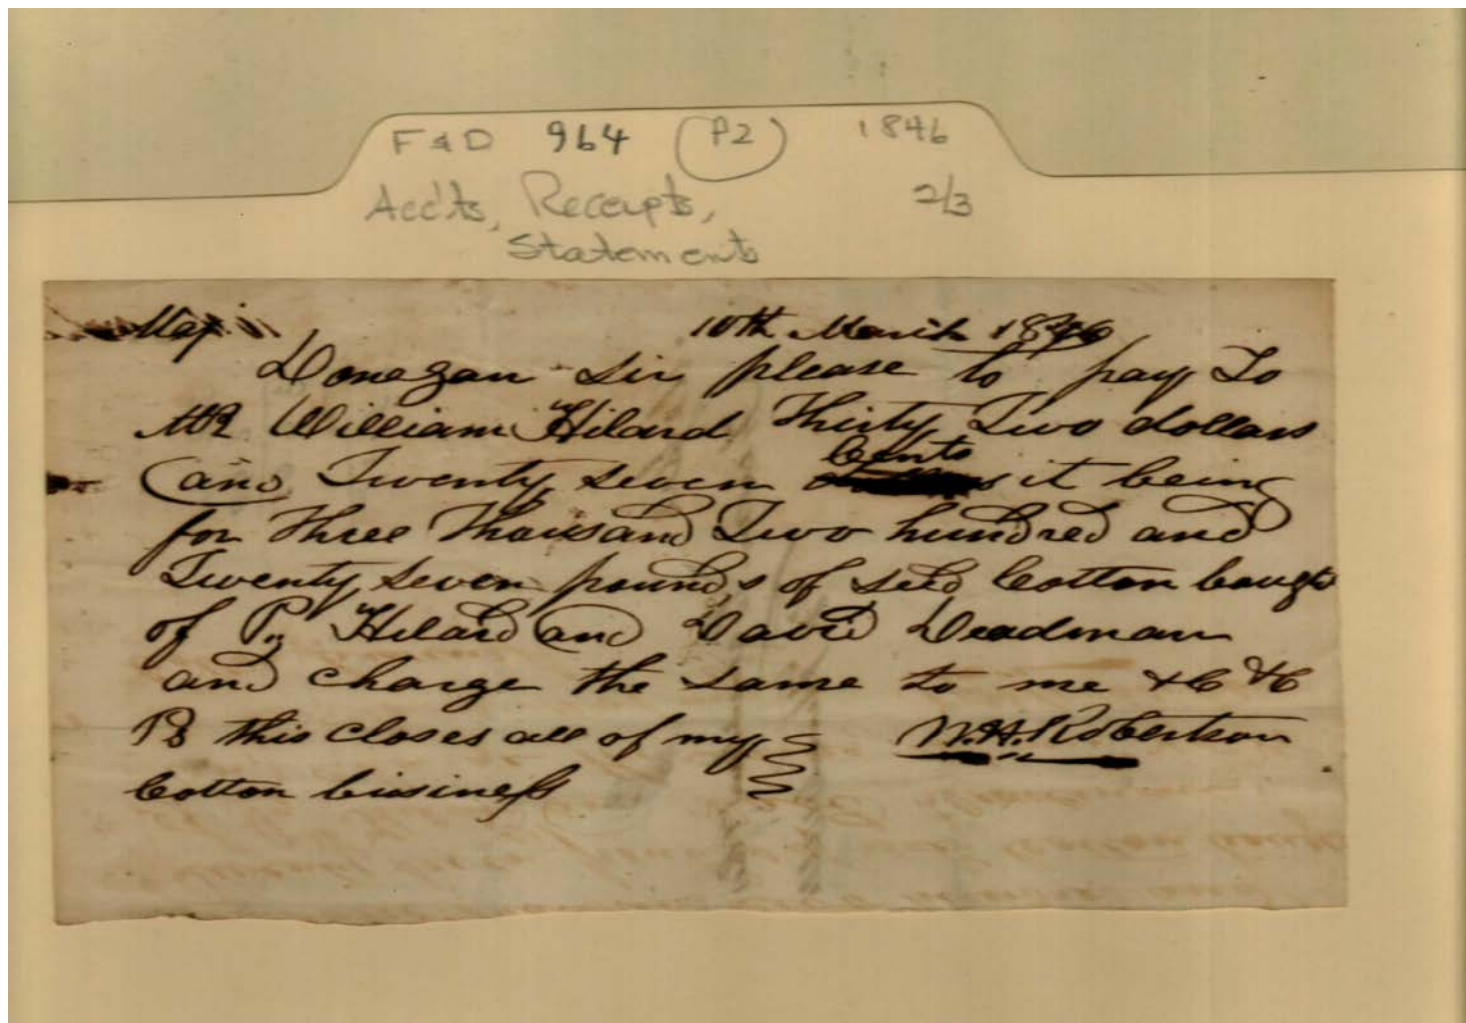 F & D 964 (P2) 1846
Acc'ts, Receipts, 2/3
Statements
Maj 10th March 1846
Donegan Sir please to pay To
MR William Hilard Thirty Two dollars
and Twenty seven Cents it being
for Three Thousand Two hundred and
Twenty seven pounds of seed Cotton bougt
of P. Hilard and David Deadman
and charge the same to me &C &C
PS this closes all of my W. H. Robertson
Cotton business